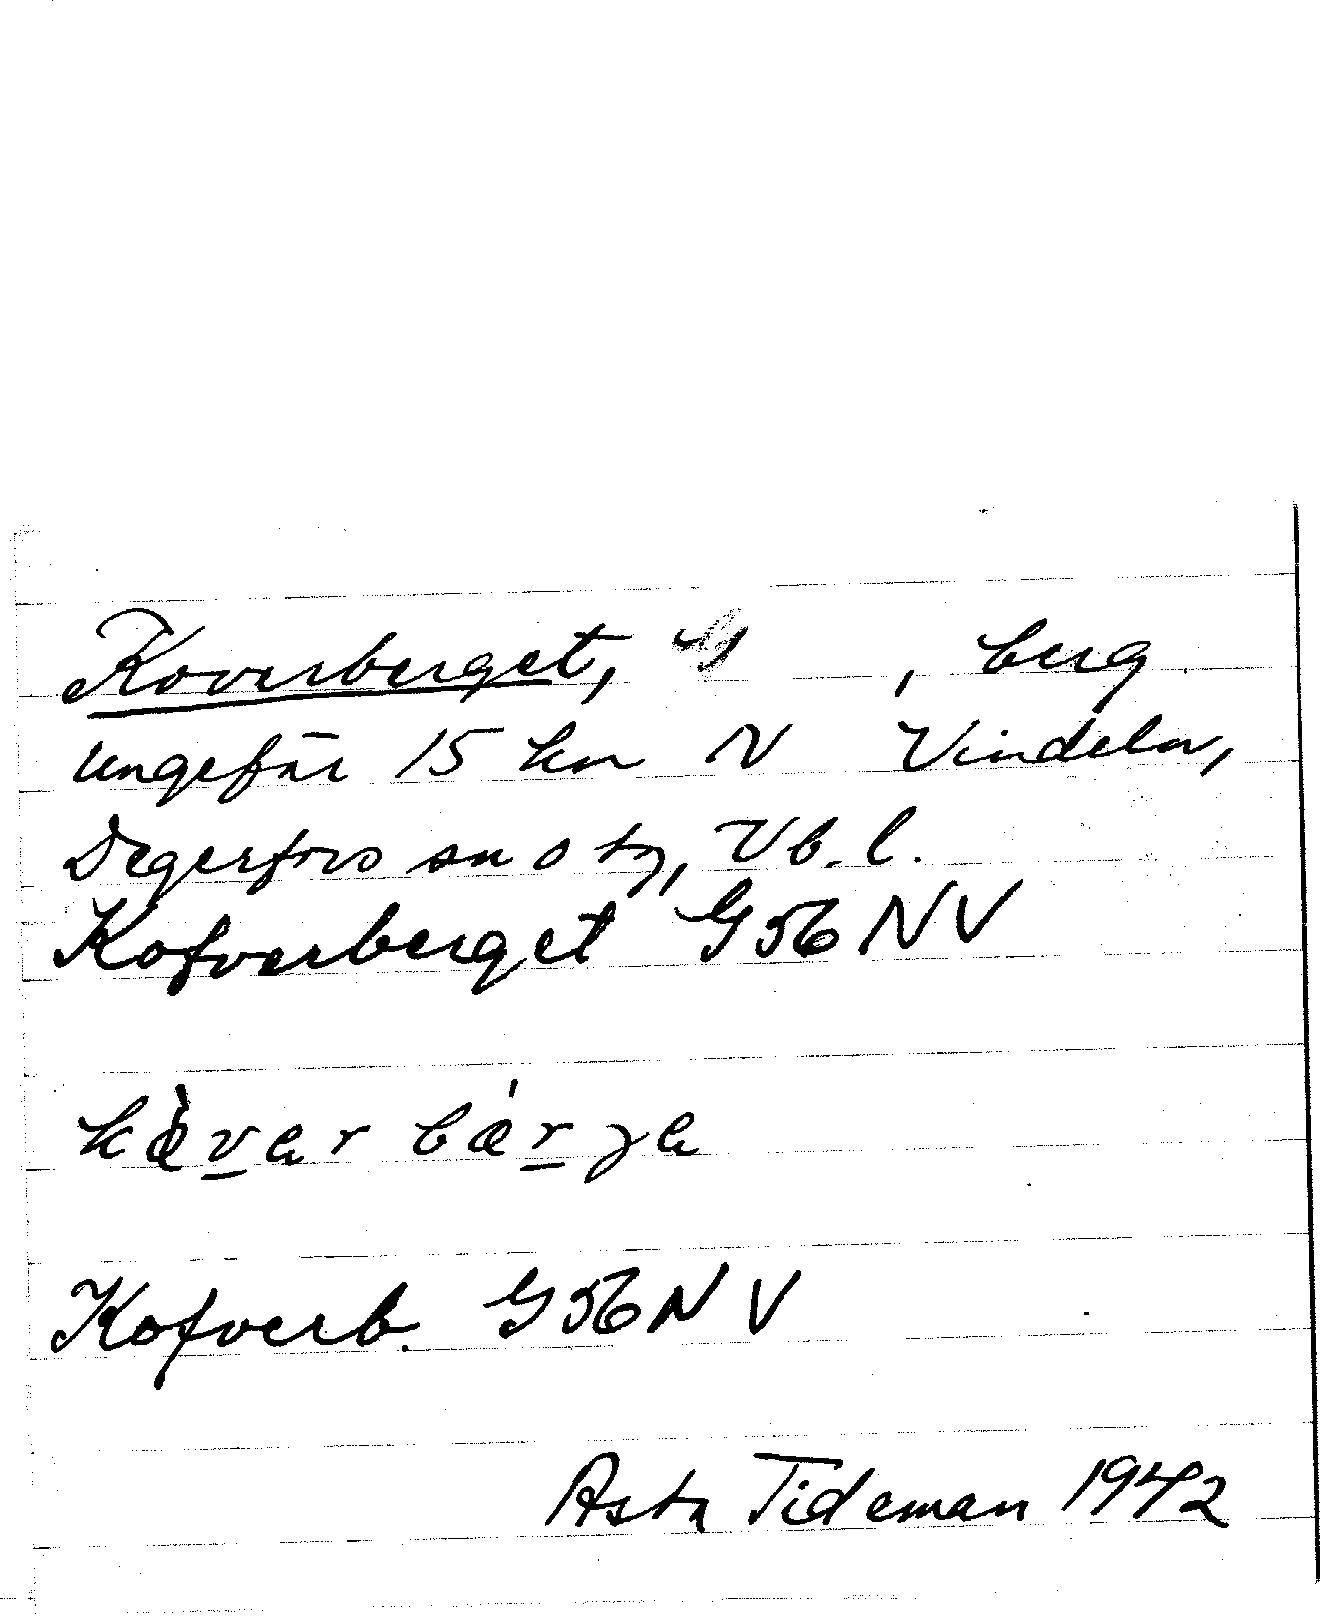 Koverberget, G , berg
ungefär 15 km N Vindeln,
Degerfors sn o tg, Vb. l.
Kofverberget G56NV
Kofverb. G56NV
Asta Tideman 1942